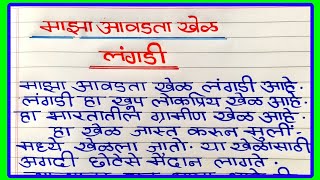 माझा आवडता खेळ
लंगडी
माझा आवडता खेळ लंगडी आहे.
लंगडी हा खूप लोकप्रिय खेळ आहे.
हा भारतातील ग्रामीण खेळ आहे.
हा खेळ जास्त करून मुलीं-
मध्ये खेळला जातो. या खेळासाठी
अगदी छोटेसे मैदान लागते.